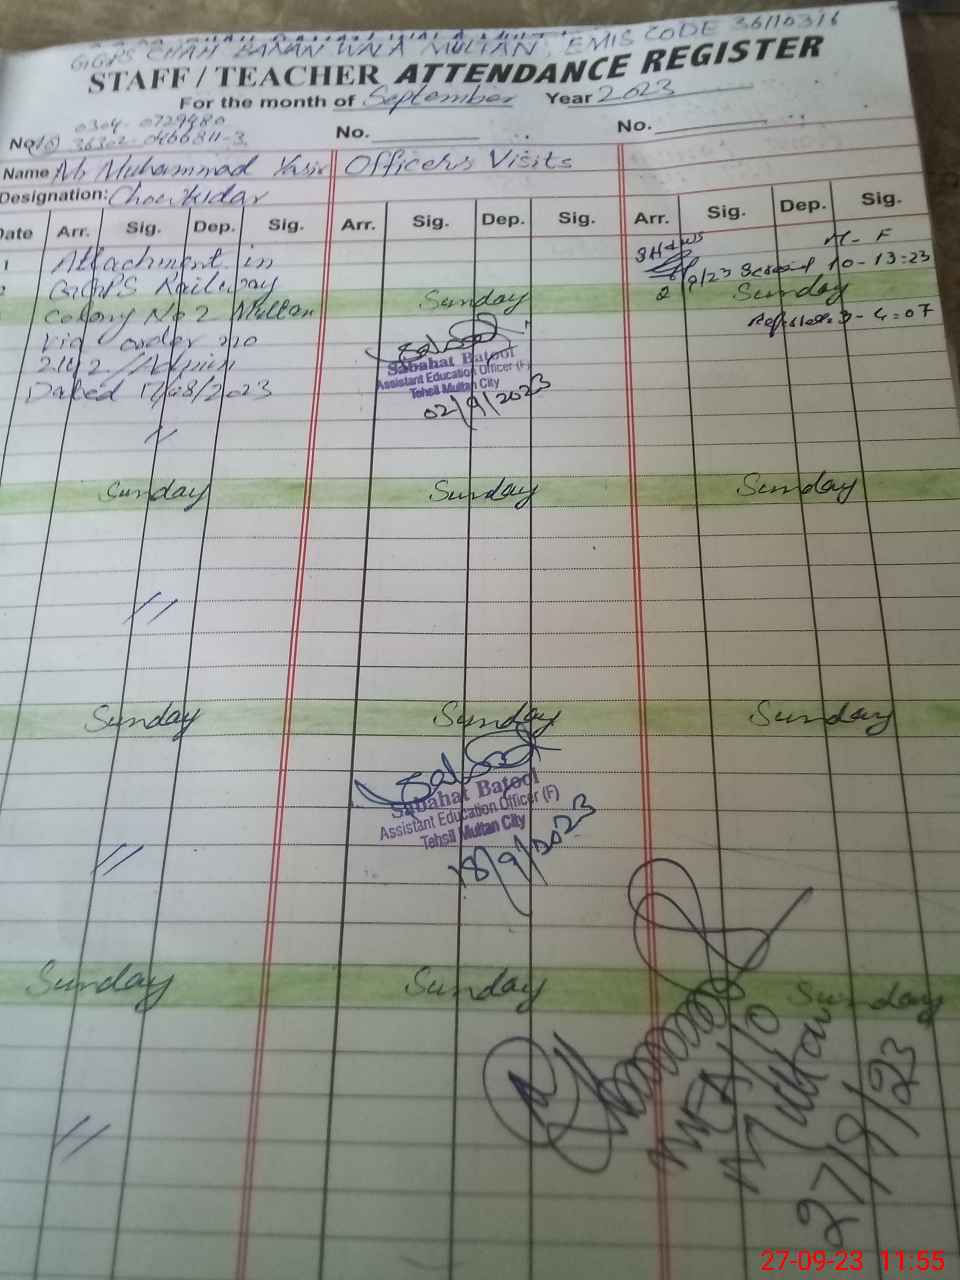 GGPS CHAH BANAN WALA MULTAN, EMIS CODE 36110316
STAFF / TEACHER ATTENDANCE REGISTER
For the month of September Year 2023
0304-0729480
No. 36302-0466811-3 No. No.
Name Mr Muhammad Yasir Officers Visits
Designation: Chowkidar
Date Arr. Sig. Dep. Sig. Arr. Sig. Dep. Sig. Arr. Sig. Dep. Sig.
1 Attachment in M - F
GGPS Railway 10-13=23
Sunday Sunday
Colony No 2 Multan 3-4=07
via order no
242/Admin
Dated 17/08/2023
Sabahat Batool
Assistant Education Officer (F)
Tehsil Multan City
02/9/2023
"
Sunday Sunday Sunday
"
Sunday Sunday Sunday
Sabahat Batool
Assistant Education Officer (F)
Tehsil Multan City
18/9/2023
"
Sunday Sunday Sunday
Multan
27/9/23
"
27-09-23 11:55